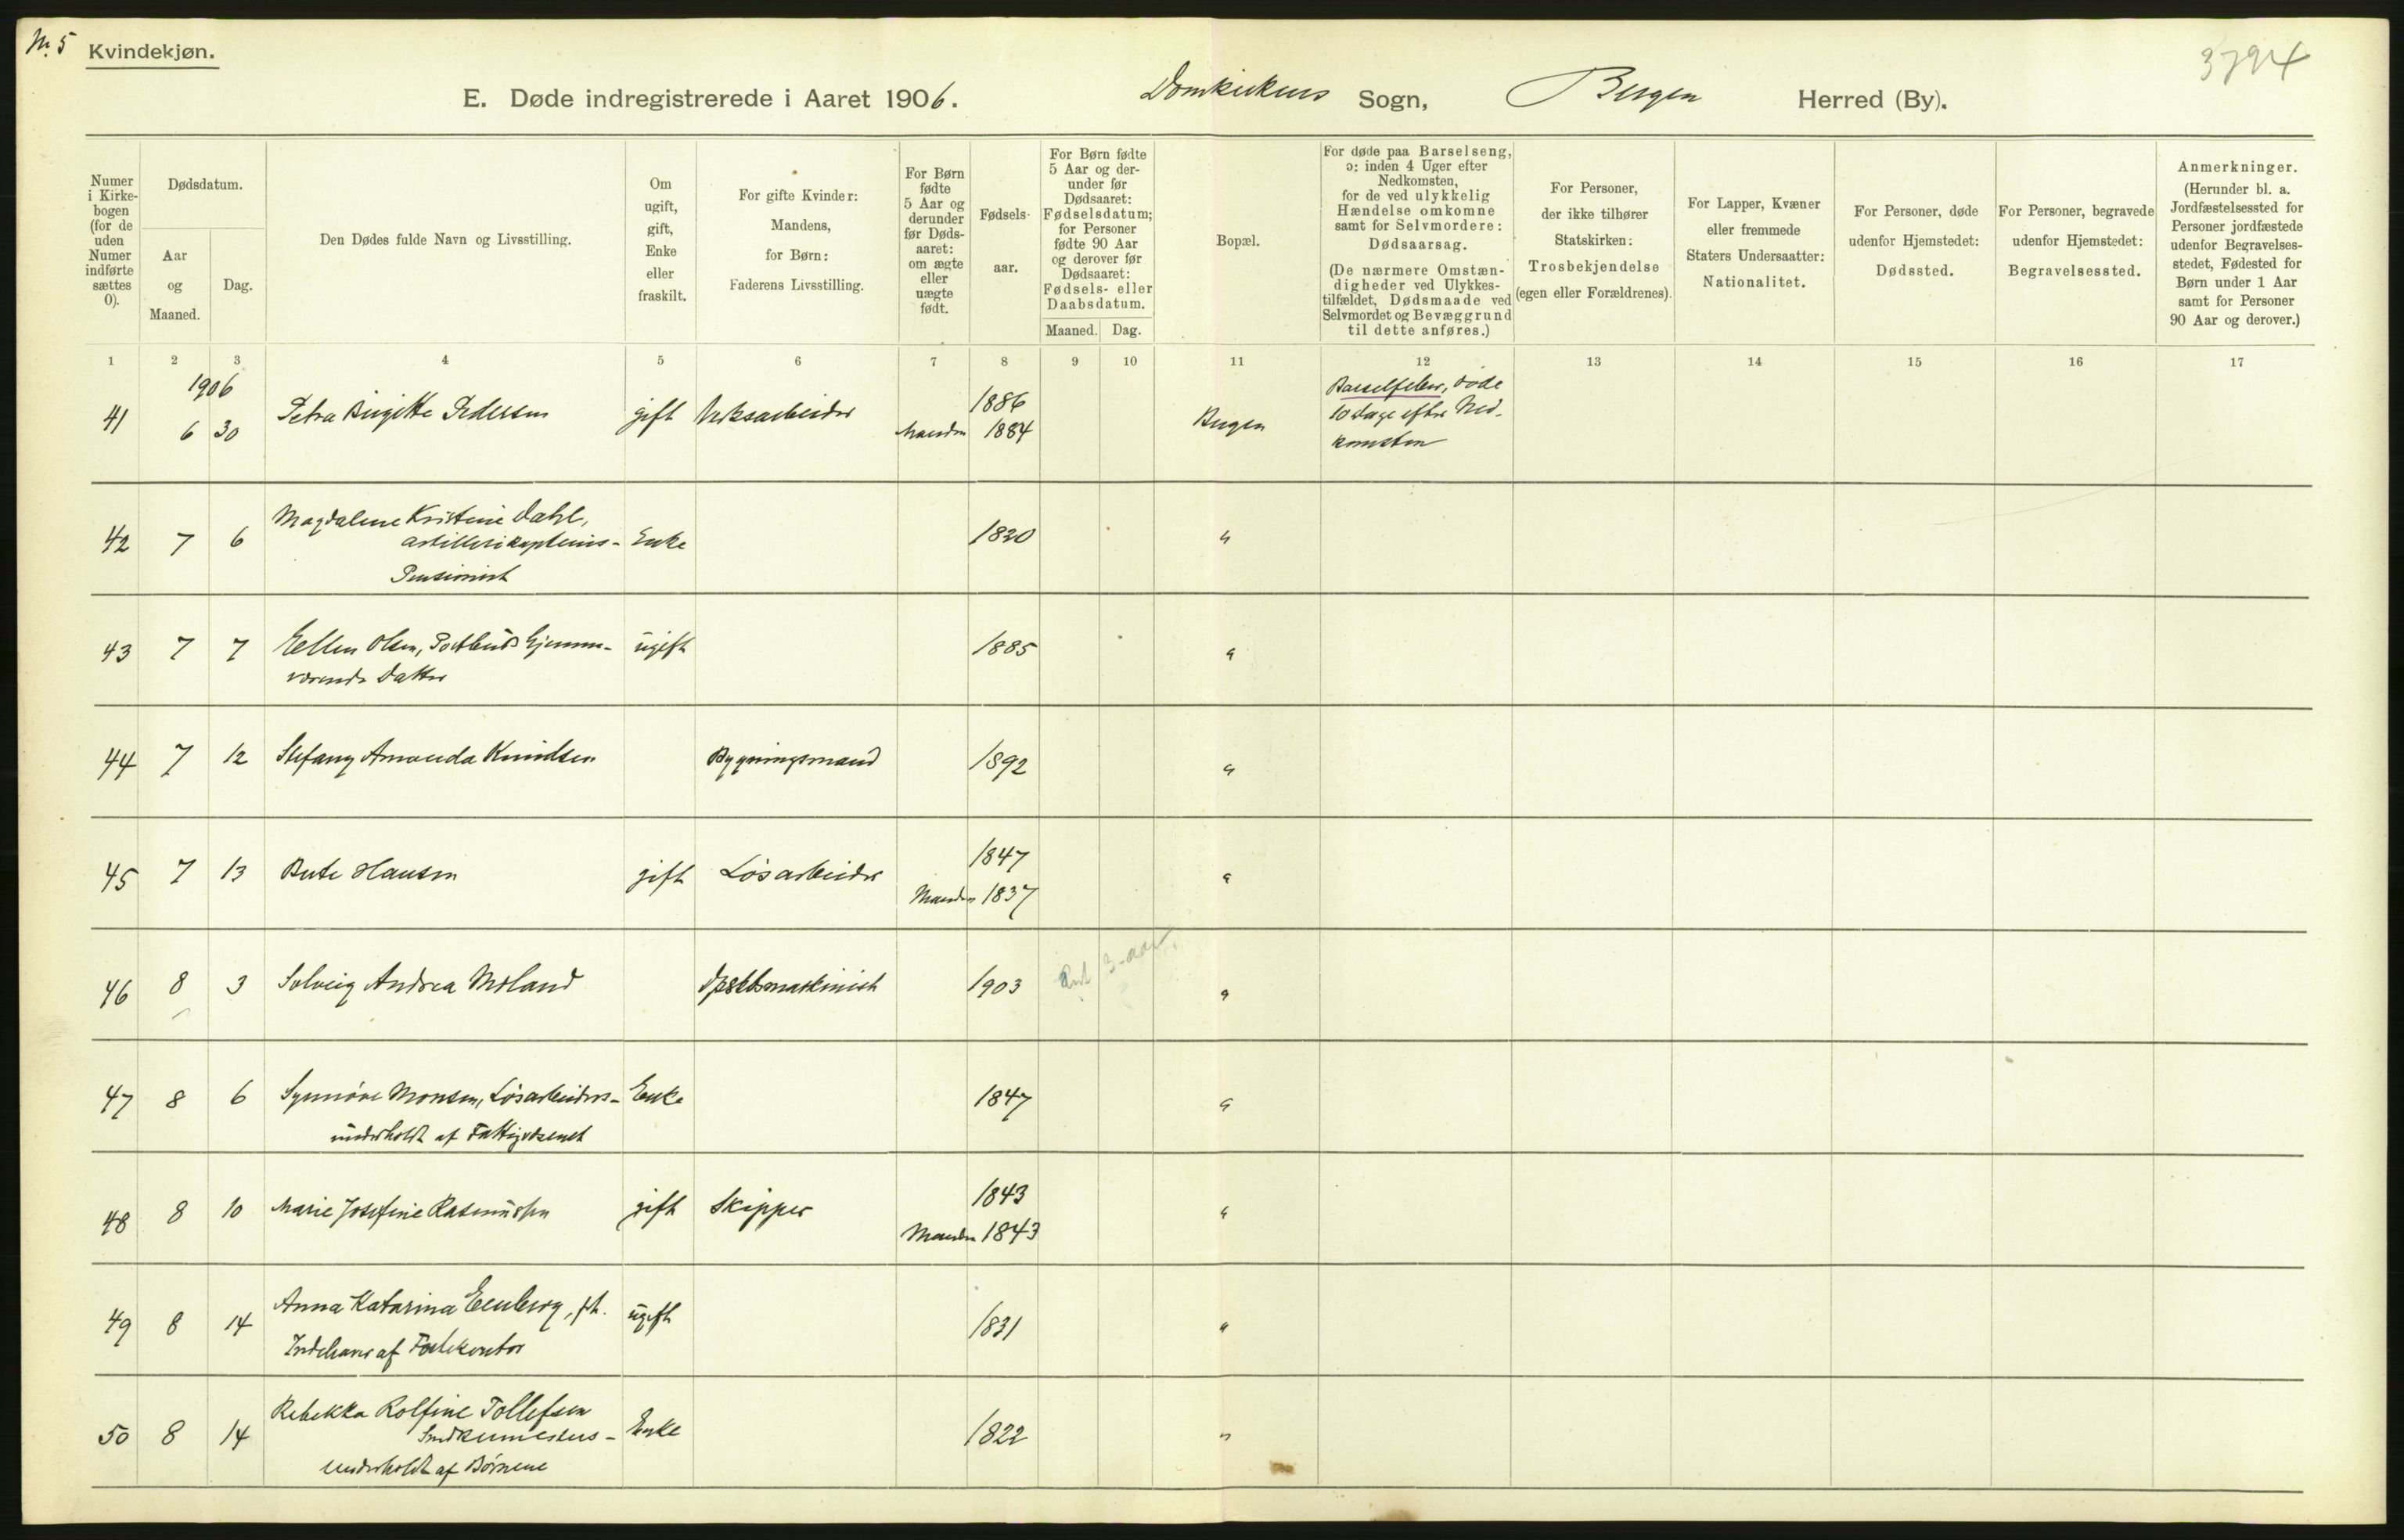 No. 5
Kvindekjøn.
3794
E. Døde indregistrerede i Aaret 1906.
Domkirkens Sogn, Bergen Herred (By).
Numer i Kirke-bogen (for de uden Numer indførte sættes 0).
Dødsdatum.
Aar og Maaned.
Dag.
Den Dødes fulde Navn og Livsstilling.
Om ugift, gift, Enke eller fraskilt.
For gifte Kvinder: Mandens, for Børn: Faderens Livsstilling.
For Børn fødte 5 Aar og derunder før Døds-aaret: om ægte eller uægte født.
Fødsels-aar.
For Børn fødte 5 Aar og der-under før Dødsaaret: Fødselsdatum; for Personer fødte 90 Aar og derover før Dødsaaret: Fødsels- eller Daabsdatum.
Maaned. Dag.
Bopæl.
For døde paa Barselseng, ɔ: inden 4 Uger efter Nedkomsten, for de ved ulykkelig Hændelse omkomne samt for Selvmordere: Dødsaarsag.
(De nærmere Omstæn-digheder ved Ulykkes-tilfældet, Dødsmaade ved Selvmordet og Bevæggrund til dette anføres.)
For Personer, der ikke tilhører Statskirken: Trosbekjendelse (egen eller Forældrenes).
For Lapper, Kvæner eller fremmede Staters Undersaatter: Nationalitet.
For Personer, døde udenfor Hjemstedet: Dødssted.
For Personer, begravede udenfor Hjemstedet: Begravelsessted.
Anmerkninger.
(Herunder bl. a. Jordfæstelsessted for Personer jordfæstede udenfor Begravelses-stedet, Fødested for Børn under 1 Aar samt for Personer 90 Aar og derover.)
1 2 3 4 5 6 7 8 9 10 11 12 13 14 15 16 17
1906
41 6 30 Petra Birgitte Pedersen gift Verksarbeider 1886 Bergen Barselfeber, døde
Manden 1884 10 dage efter Ned-
komsten
42 7 6 Magdalene Kristine Dahl, Enke 1830 "
artillerikapteins-
Pensionist
43 7 7 Ellen Olsen, Postbuds hjemme- ugift 1885 "
værende datter
44 7 12 Stefany Amanda Knudsen Bygningsmand 1892 "
45 7 13 Berte Hansen gift Løsarbeider 1847 "
Manden 1837
46 8 3 Solveig Andrea Moland Dpskbsmaskinist 1903 3-aar. "
47 8 6 Synnøve Monsen, Løsarbeiders- Enke 1847 "
underholdt af Fattigvæsenet
48 8 10 Marie Josefine Rasmussen gift Skipper 1843 "
Manden 1843
49 8 14 Anna Katarina , fh. ugift 1831 "
Indehaver af
50 8 14 Rebekka Rolfine Tollefsen Enke 1822 "
underholdt af Børnene